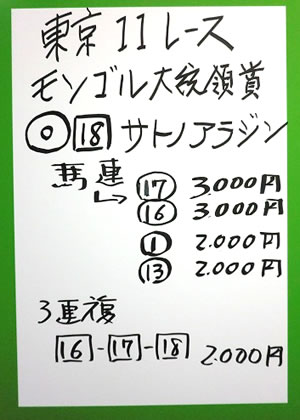 東京11レース
モンゴル大統領賞
◎ 18 サトノアラジン
馬連
↳ 17 3.000円
16 3.000円
1 2.000円
13 2.000円
3連複
16-17-18 2.000円